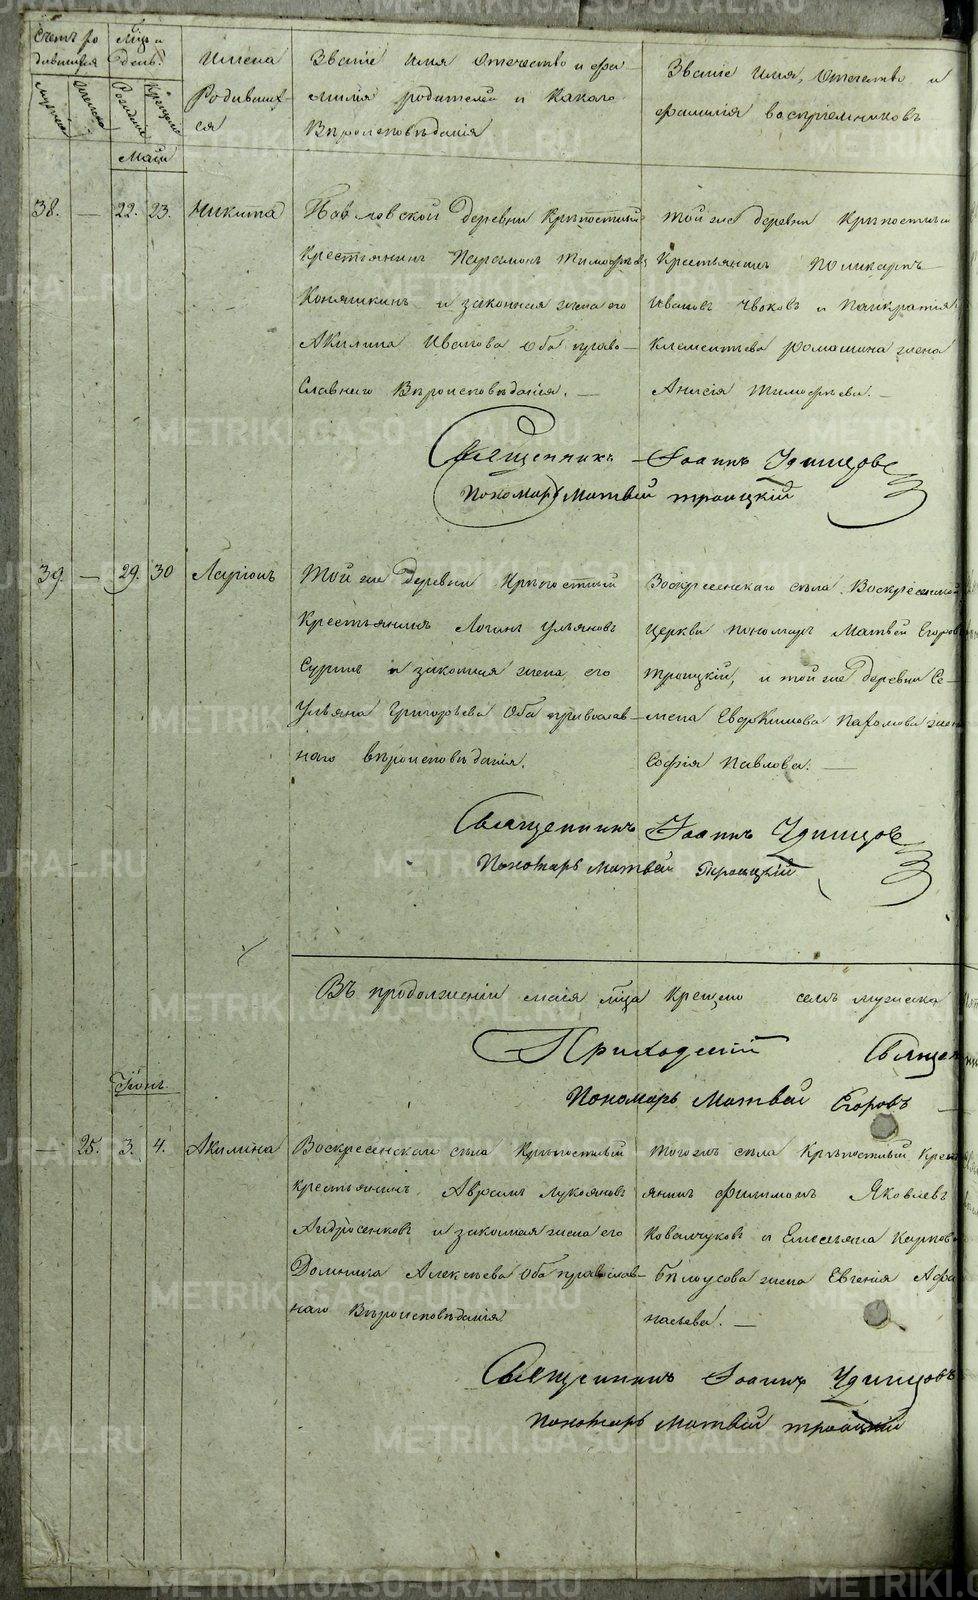 Счетъ ро
дившихся
мужеска
женска
Мѣц и
день.
Рожденія
Крещенія
Имена
Родивших
ся
Званіе Имя Отечество и фа
милія родителей и какого
Вѣроисповѣданія
Званіе Имя, Отечество и
фамилія воспріемниковъ
Маій
38. — 22. 23. Никита
Павловской деревни Крѣпостный
крестьянинъ Парамонъ Тимофѣевъ
Коняшкинъ и законная жена его
Акилина Иванова оба право—
славнаго Вѣроисповѣданія. —
той же деревни Крѣпостный
Крестьянинъ Поликарпъ
Ивановъ Чвоковъ и Панкратія
Клементьева Ромашина жена
Анисія Тимофѣева. —
Священникъ Іоаннъ Удинцовъ
Пономарь Матвѣй Троицкій
39. — 29. 30 Ларіонъ
Той же деревни Крѣпостный
Крестьянинъ Логинъ Ульяновъ
Суринъ и законная жена его
Ульяна Григорьева Оба православ—
наго вѣроисповѣданія.
Воскресенскаго села Воскресенской
церкви пономарь Матвѣй Егоровъ
Троицкій, и той же деревни Се—
мена Евдокимова Пахомова жена
Софія Павлова. —
Священникъ Іоаннъ Удинцовъ
Пономарь Матвѣй Троицкій
Въ продолженіи маія мѣца Крещено семь мужеска
Приходскій Священникъ
Пономарь Матвѣй Егоровъ
Іюнь.
— 25. 3. 4. Акилина
Воскресенскаго села Крѣпостный
крестьянинъ Аврамъ Лукояновъ
Андросенковъ и законная жена его
Домника Алексѣева Оба православ—
наго Вѣроисповѣданія
Тогожъ села Крѣпостный Кресть
янинъ Филимонъ Яковлевъ
Ковальчуковъ и Емельяна Карпова
Бѣлоусова жена Евгенія Афа
насьева. —
Священникъ Іоаннъ Удинцовъ
Пономарь Матвѣй Троицкій
METRIKI.GASO-URAL.RU